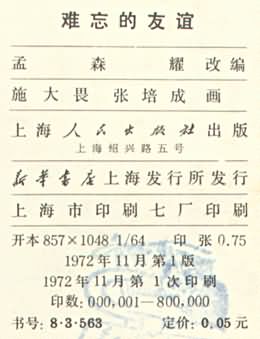 难忘的友谊
孟森耀改编
施大畏 张培成画
上海人民出版社出版
上海绍兴路五号
新华书店上海发行所发行
上海市印刷七厂印刷
开本 857×1048 1/64 印张 0.75
1972年11月第1版
1972年11月第1次印刷
印数:000,001—800,000
书号:8·3·563 定价:0.05元